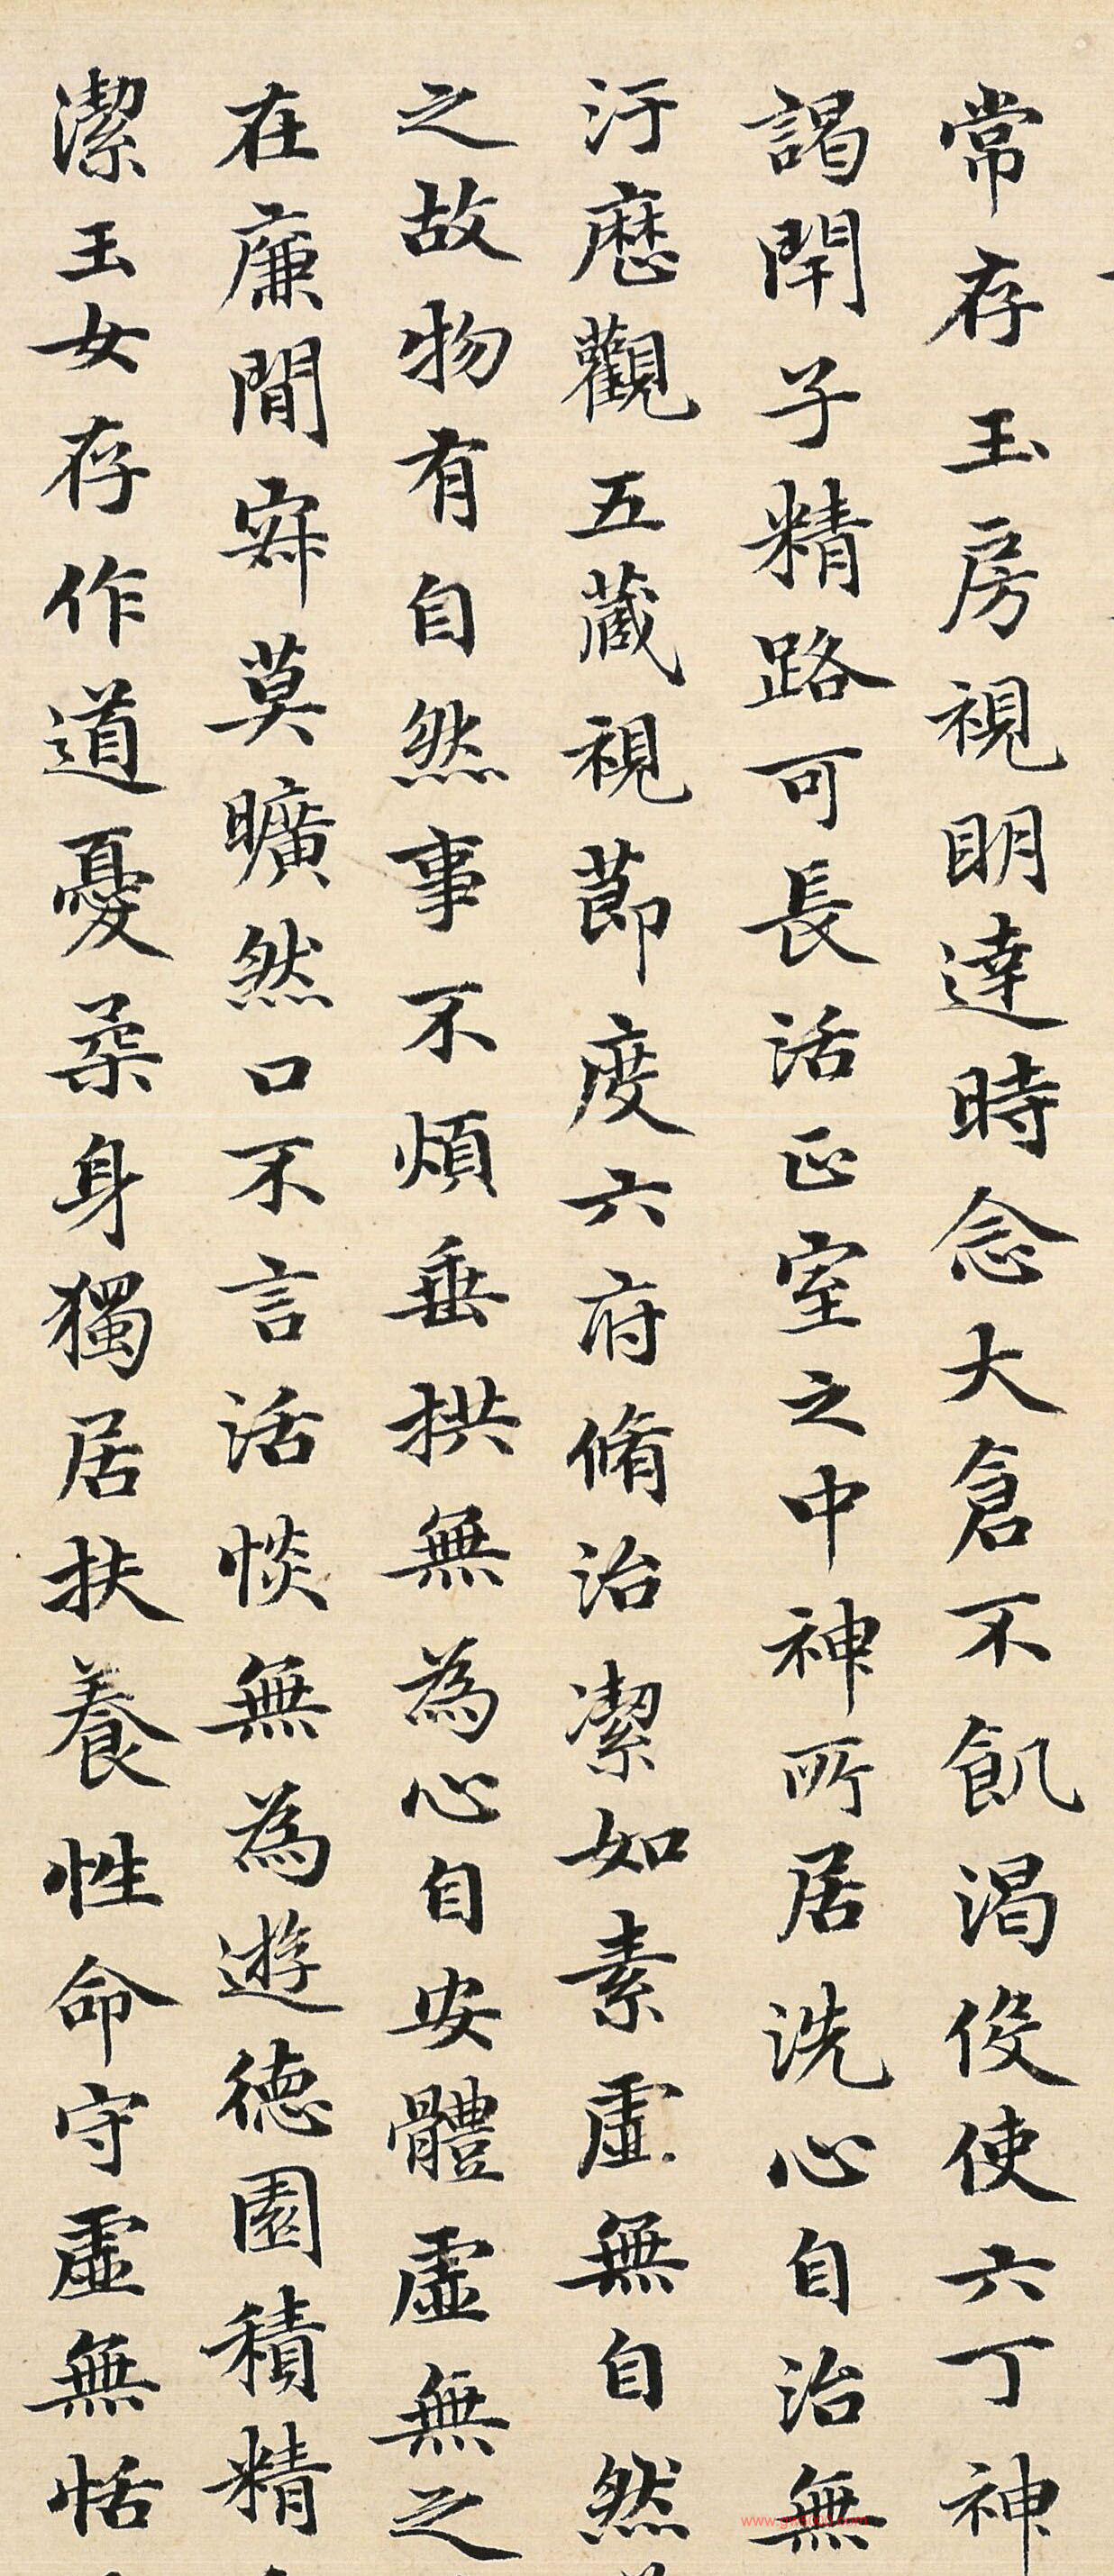 常存玉房視明達時念大倉不飢渴伇使六丁神
謁閇子精路可長活正室之中神所居洗心自治無
汙歴觀五藏視節度六府脩治潔如素虛無自然
之故物有自然事不煩垂拱無為心自安體虛無之
在廉間寂莫曠然口不言活惔無為遊德園積精
潔玉女存作道憂柔身獨居扶養性命守虛無恬